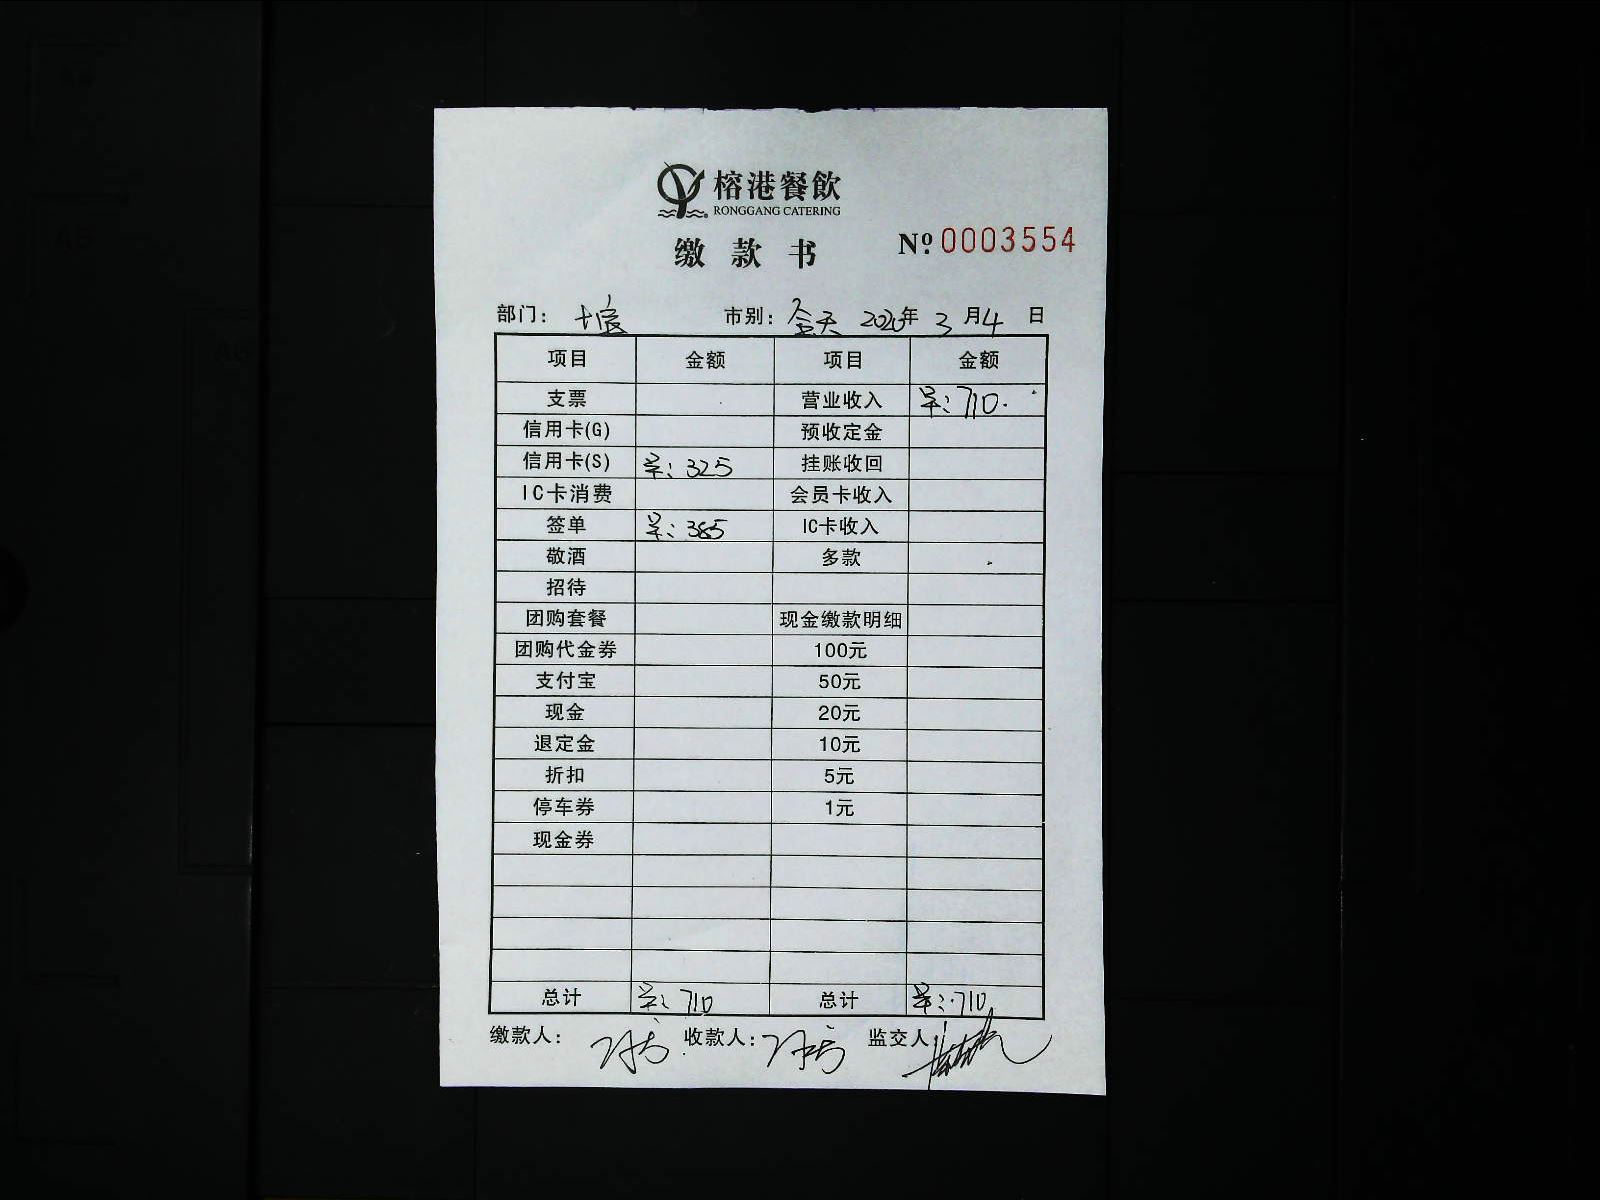 榕港餐飲
RONGGANG CATERING
缴款书 Nº 0003554
部门： 市别：全天 2020年3月4日
项目 金额 项目 金额
支票 营业收入 单：710.
信用卡(G) 预收定金
信用卡(S) 单：325 挂账收回
IC卡消费 会员卡收入
签单 单：385 IC卡收入
敬酒 多款
招待
团购套餐 现金缴款明细
团购代金券 100元
支付宝 50元
现金 20元
退定金 10元
折扣 5元
停车券 1元
现金券
总计 单：710 总计 单：710
缴款人： 收款人： 监交人：